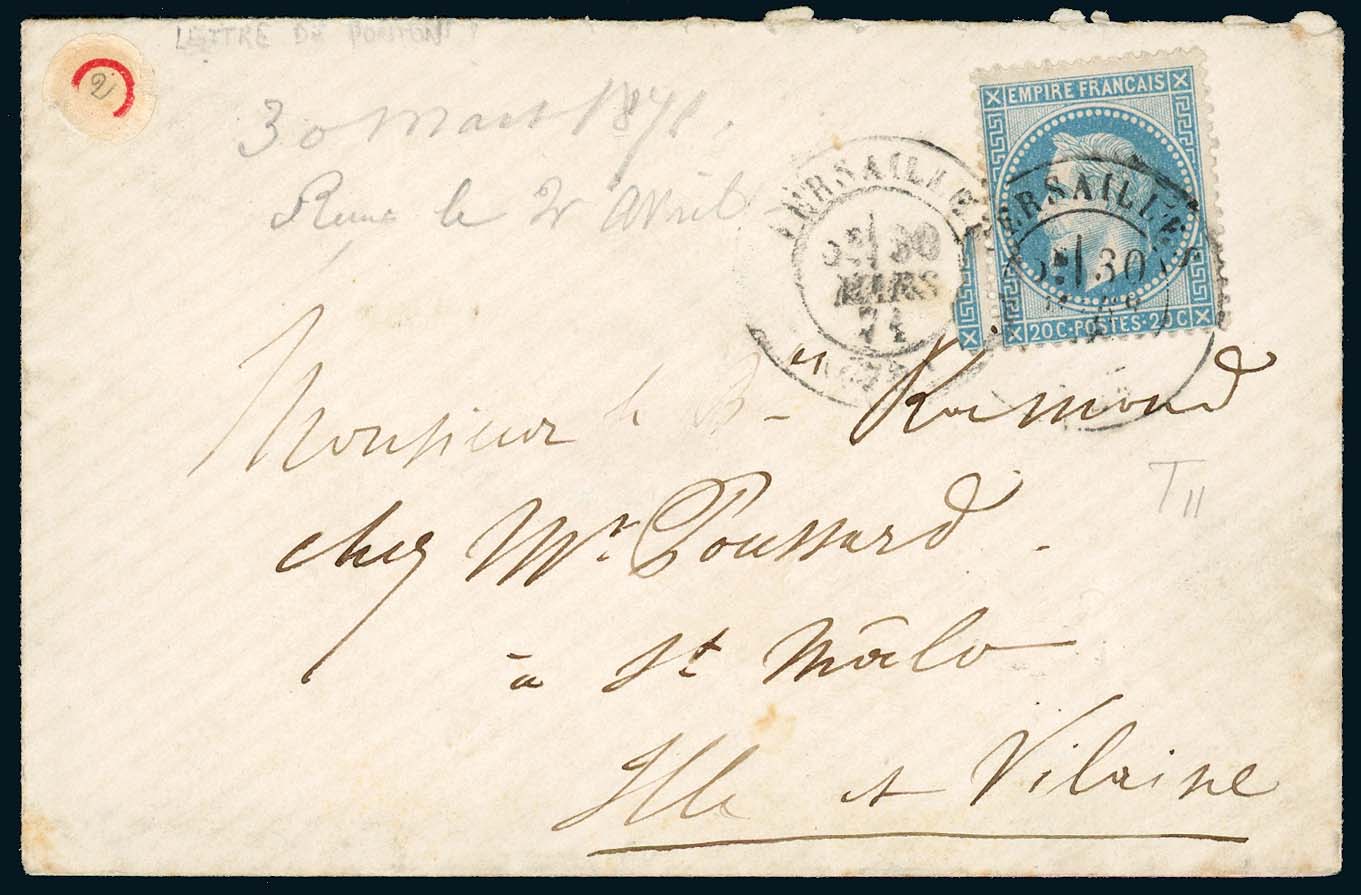 LETTRE DE
30 Mars 1871.
le 2 Avril
EMPIRE FRANCAIS
20C·POSTES·20C
VERSAILLES
30
MARS
71
VERSAILLES
30
Monsieur le B- Ramond
chez Mr Poussard.
à St Mâlo
Ille et Vilaine
T II